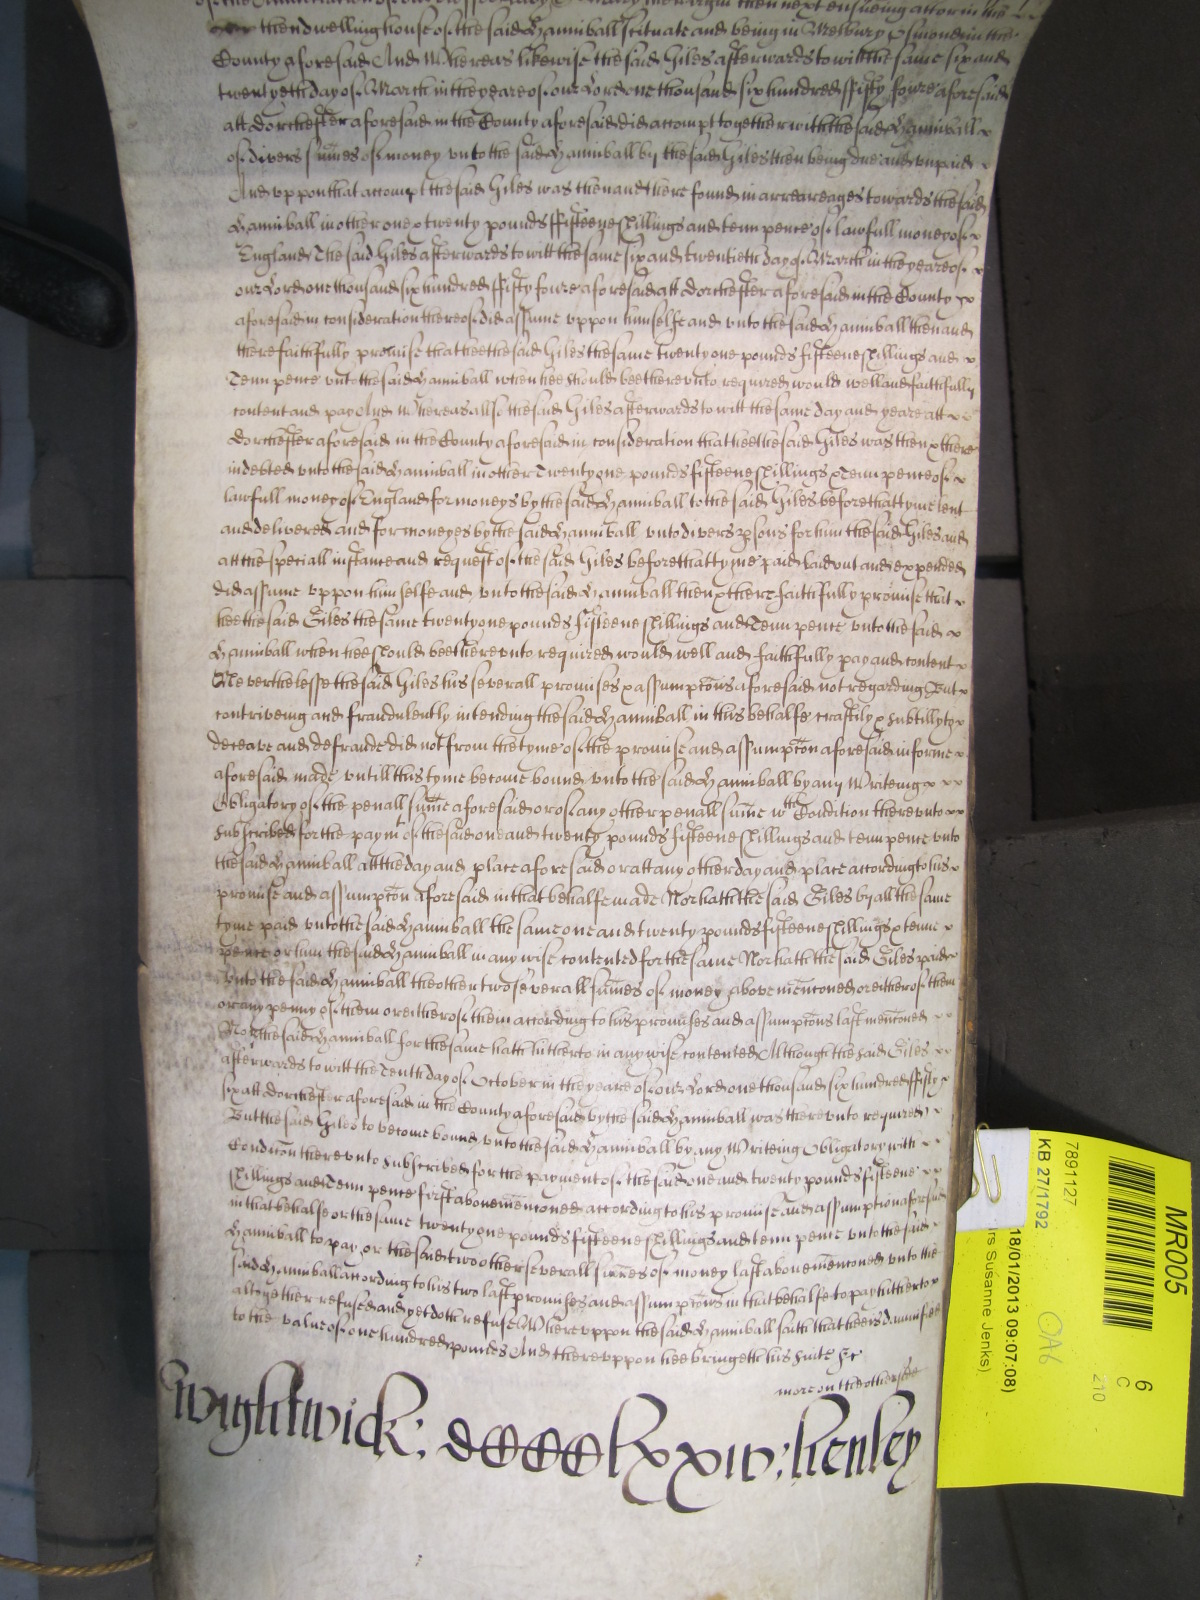 of the Annunciation of our blessed Lady St Mary the virgin then next ensueing att or in the
the dwelling house of the said Hanniball scituate and being in Melbury Osmond in the
County aforesaid And Whereas likewise the said Giles afterwards to witt the same six and
twentyeth day of March in the yeare of our Lord one thousand six hundred fifty foure aforesaid
att Dorchester aforesaid in the County aforesaid did accompt together with the said Hanniball
of divers sumes of money unto the said Hanniball by the said Giles then being due and unpaid
And uppon that accompt the said Giles was then and there found in arrearages towards the said
Hanniball in other one & twenty pounds fifteene shillings and tenn pence of lawfull money of
England The said Giles afterwards to witt the same six and twentieth day of March in the yeare of
our Lord one thousand six hundred fifty foure aforesaid att Dorchester aforesaid in the County
aforesaid in consideration thereof did assume uppon himselfe and unto the said Hanniball then and
there faithfully promise that hee the said Giles the same twenty one pounds fifteene shillings and
Tenn pence unto the said Hanniball when hee should bee thereunto required would well and faithfully
content and pay And Whereas allso the said Giles afterwards to witt the same day and yeare att
Dorchester aforesaid in the County aforesaid in consideration that hee the said Giles was then & there
indebted unto the said Hanniball in other Twenty one pounds fifteene shillings & Tenn pence of
lawfull money of England for moneys by the said Hanniball to the said Giles before that tyme lent
and delivered and for moneyes by the said Hanniball unto divers psons for him the said Giles and
att the speciall instance and request of the said Giles before that tyme paid laid out and expended
did assume uppon himselfe and unto the said Hanniball then & there faithfully promise that
hee the said Giles the same twenty one pounds fifteene shillings and Tenn pence unto the said
Hanniball when hee should bee thereunto required would well and faithfully pay and content
Neverthelesse the said Giles his severall promises & assumptons aforesaid not regarding But
contriveing and fraudulently intending the said Hanniball in this behalfe craftily & subtilly to
deceave and defraude did not from the tyme of the promise and assumpton aforesaid in forme
aforesaid made untill this tyme become bound unto the said Hanniball by any Writeing
Obligatory of the penall sume aforesaid or of any other penall sume wth Condition thereunto
subscribed for the paymt of the said one and twenty pounds fifteene shillings and tenn pence unto
the said Hanniball att the day and place aforesaid or att any other day and place according to his
promise and assumpton aforesaid in that behalfe made Nor hath the said Giles by all the same
tyme paid unto the said Hanniball the same one and twenty pounds fifteene shillings & tenne
pence or him the said Hanniball in any wise contented for the same Nor hath the said Giles paid
unto the said Hanniball the other two severall sumes of money above mencioned or either of them
or any penny of them or either of them according to his promises and assumptons last mencioned
Nor the said Hanniball for the same hath hitherto in any wise contented Although the said Giles
afterwards to witt the Tenth day of October in the yeare of our Lord one thousand six hundred fifty
six att Dorchester aforesaid in the County aforesaid by the said Hanniball was thereunto required
But the said Giles to become bound unto the said Hanniball by any Writeing Obligatory with
Condicion thereunto subscribed for the payment of the said one and twenty pounds fifteene
shillings and Tenn pence first above mencioned according to his promise and assumption aforesaid
in that behalfe or the same twenty one pounds fifteene shillings and tenn pence unto the said
Hanniball to pay or the said two other severall sumes of money last above mencioned unto the
said Hanniball according to his two last promises and assumptons in that behalfe to pay hitherto
altogether refused and yet doth refuse Whereuppon the said Hanniball saith that hee is damnified
to the value of one hundred pounds And thereuppon hee bringeth his suite &c
more on the other side
Wightwick: dCCCClxxiv: Henley
MR005
7891127
KB 27/1792
18/01/2013 09:07:08)
rs Susanne Jenks)
OA6
6
C
210